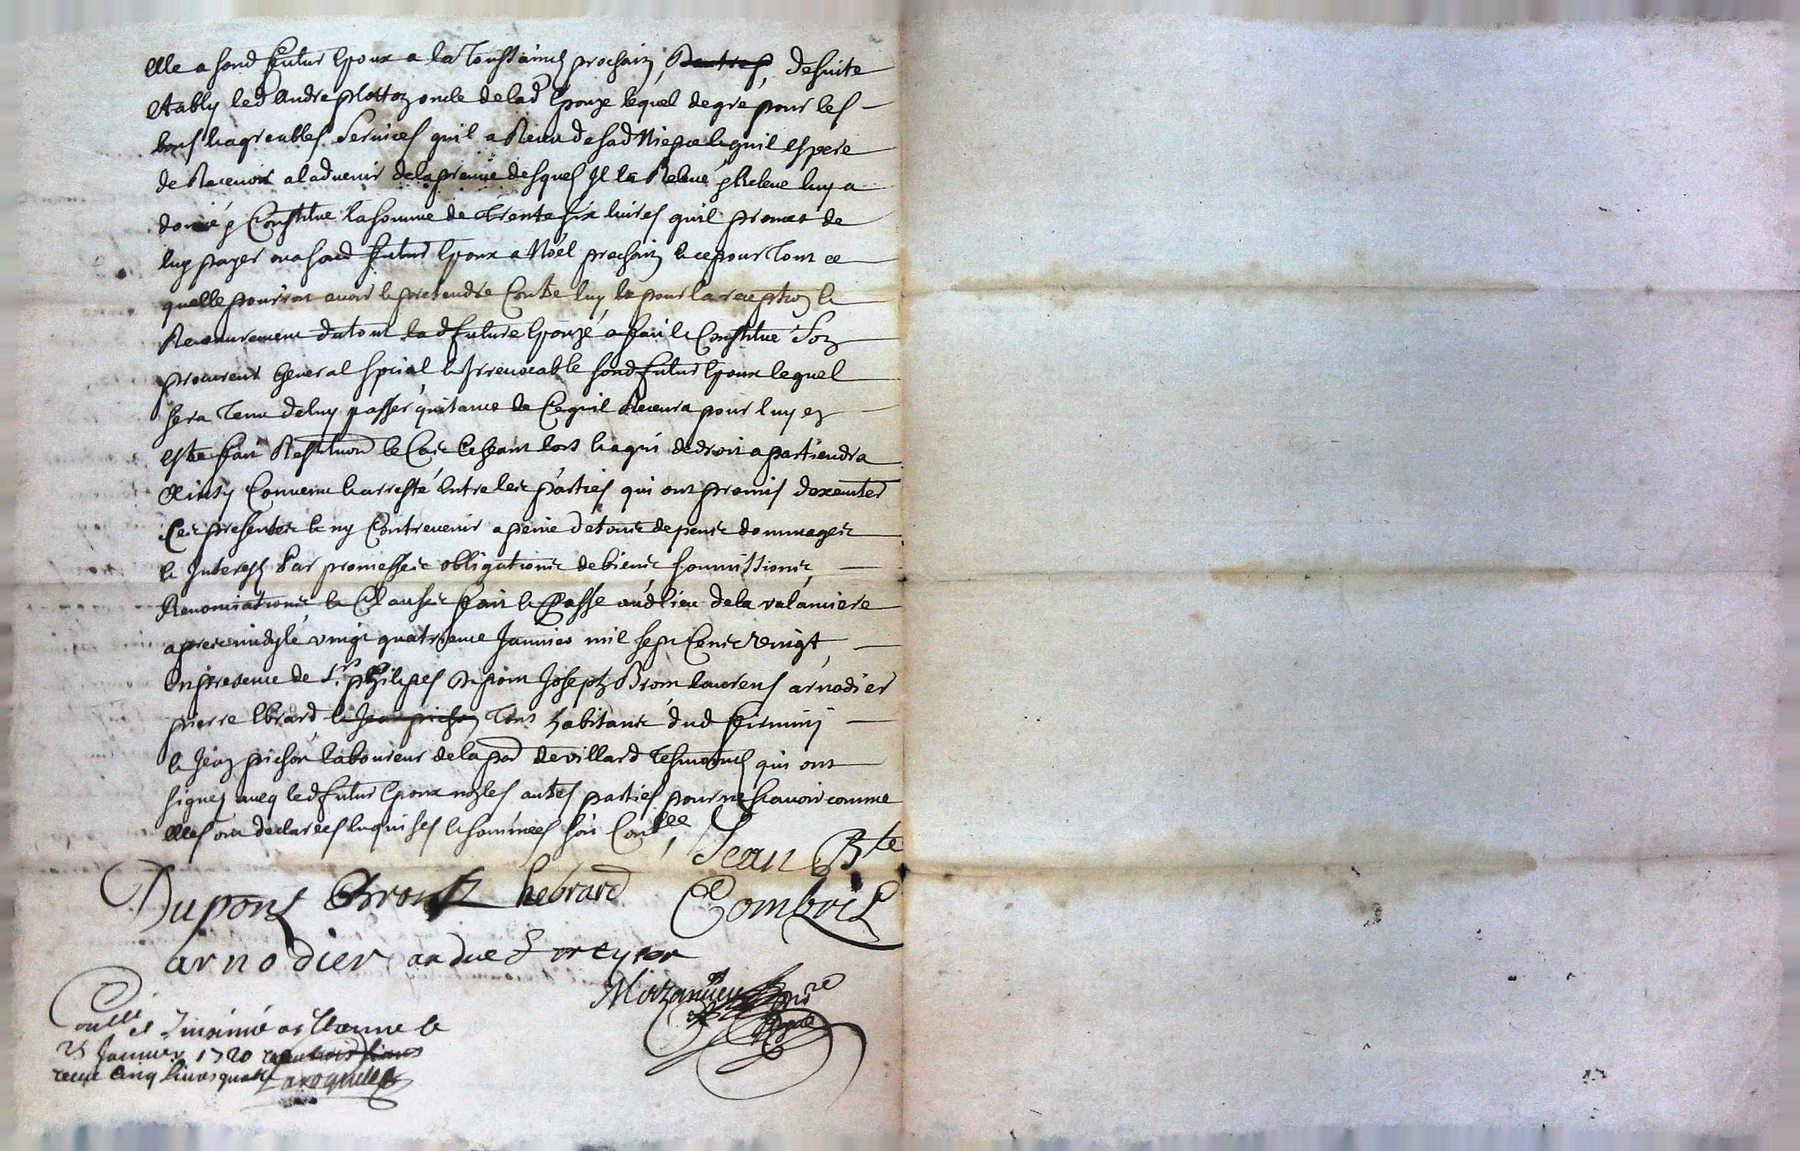 elle a sond futur Epoux a la Toussainct prochain, desuite
Estably led andre plottoz oncle de lad Epouze lequel de gre pour les
bons & agreables services quil a Receu de sad Niepce & quil espere
de Recevoir a ladvenir de la preuve desquels Il la Relevé & Releve luy a
donné & Constitue la somme de Trente six livres quil promet de
luy payer ou a sond futur Epoux a Noël prochain & ce pour Tout ce
quelle pourroit avoir & pretendre Contre luy & pour la reception &
Recouvrement du tout lad future Epouze a fait & Constitue son
procureur General special & Irrevocable sond futur Epoux lequel
sera Tenu de luy passer quitance de Ce quil Recevra pour luy en
estre fait Restitution le Cas Escheant lors & a qui de droit apartiendra
Ainsy Convenu & arresté Entre les parties qui ont promis dexecuter
Ces presentes & ny Contrevenir a peine de tous depens dommages
& Interests Par promesses obligations de biens soumissions
Renonciations & Clauses fait & Passe aud lieu de la valamiere
apres midy le vingt quatrieme Janvier mil sept Cents vingt
En presence de Sr philipes Dupoin Joseph Bron laurens arnodier
pierre Ebrard & Jean pichon Tous habitants dud firminy
& Jean pichon laboureur de la par de villard Tesmoins qui ont
signés avec led futur Epoux non les autres parties pour ne scavoir comme
elles ont declarees Enquises & sommees soit Conllé
Jean Bte
Dupont Bron hebrard Combris
arnodier
Conllé et Insinué a le
25 Janvier 1720
recu cinq livres quatre